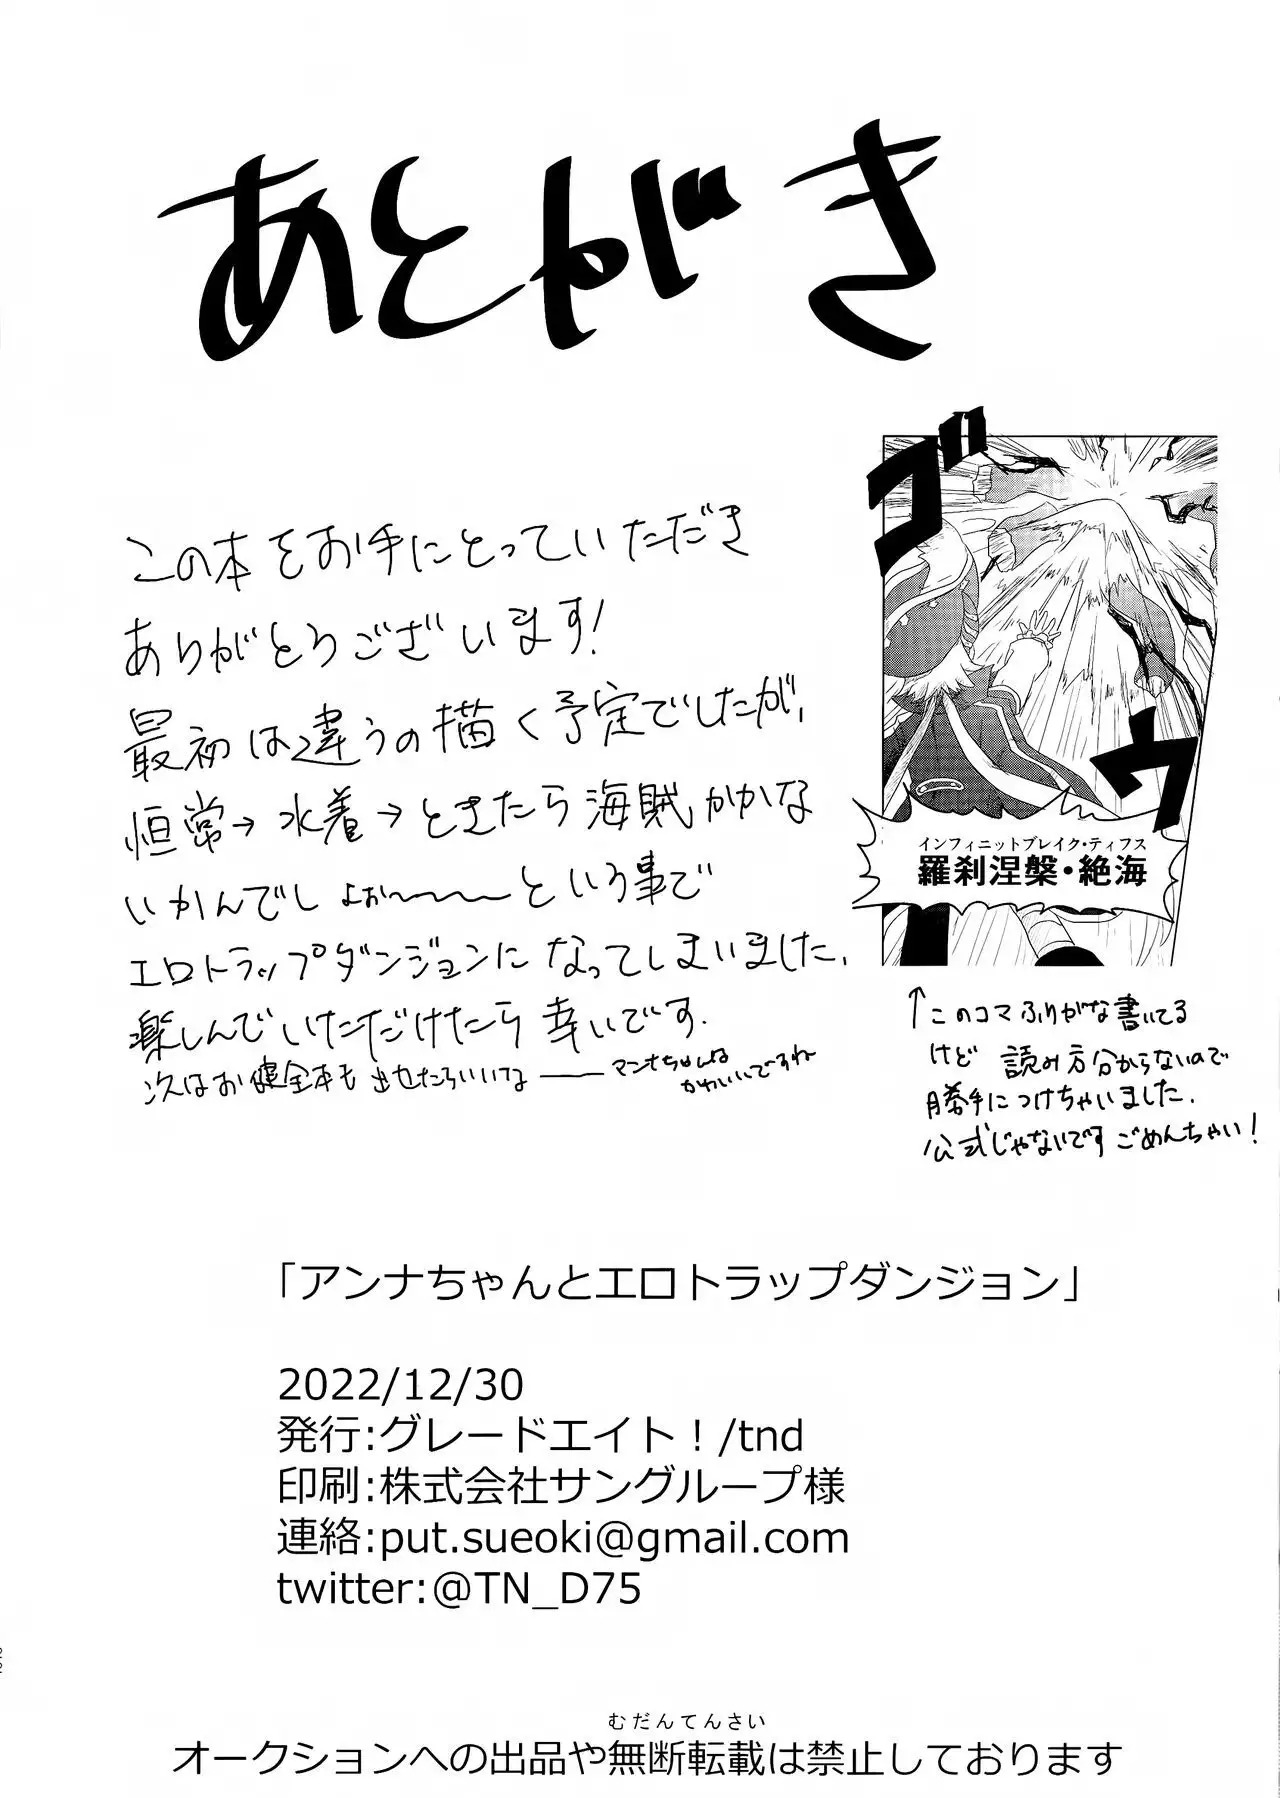 あとがき
この本をお手にとっていただき
ありがとうございます!
最初は違うの描く予定でしたが、
恒常→水着→ときたら海賊かかな
いかんでしょぉ〜〜〜という事で
エロトラップダンジョンになってしまいました.
楽しんでいただけたら幸いです.
次はお健全本も出せたらいいな――マンナちゃんは
かわいいですね
ゴ
ウ
インフィニットブレイク・ティフス
羅刹涅槃・絶海
↑このコマふりがな書いてる
けど 読み方分からないので
勝手につけちゃいました.
公式じゃないです ごめんちゃい!
「アンナちゃんとエロトラップダンジョン」
2022/12/30
発行:グレードエイト!/tnd
印刷:株式会社サングループ様
連絡:put.sueoki@gmail.com
twitter:@TN_D75
むだんてんさい
オークションへの出品や無断転載は禁止しております
22